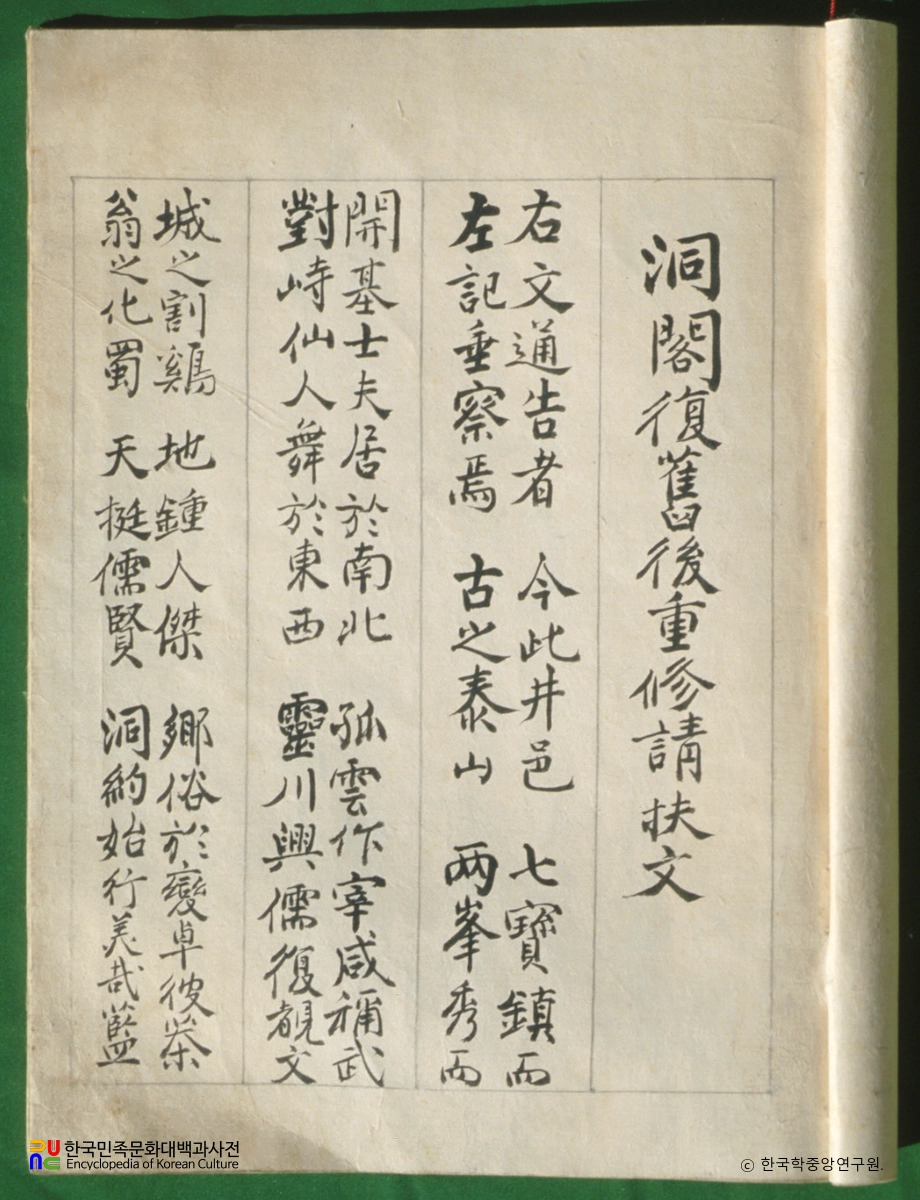 洞閣復舊後重修請扶文
右文通告者 今此井邑 七寶鎮而
左記垂察焉 古之泰山 两峯秀而
開基士夫居於南北 孤雲作宰咸稱武
對峙仙人舞於東西 靈川興儒復覩文
城之割鷄 地鍾人傑 鄉俗於變卓彼
翁之化蜀 天挺儒賢 洞約始行美哉藍
한국민족문화대백과사전
Encyclopedia of Korean Culture
ⓒ 한국학중앙연구원.